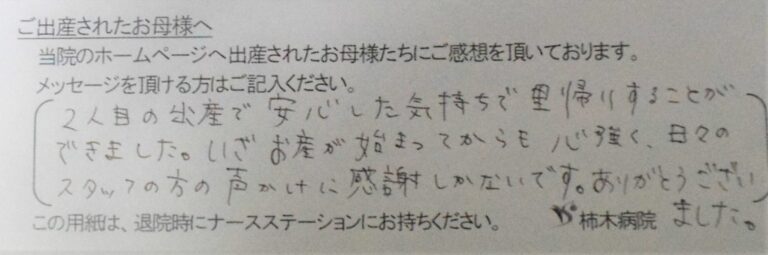 ご出産されたお母様へ
当院のホームページへ出産されたお母様たちにご感想を頂いております。
メッセージを頂ける方はご記入ください。
2人目の出産で安心した気持ちで里帰りすることが
できました。いざお産が始まってからも心強く、日々の
スタッフの方の声かけに感謝しかないです。ありがとうござい
ました。
この用紙は、退院時にナースステーションにお持ちください。 柿木病院